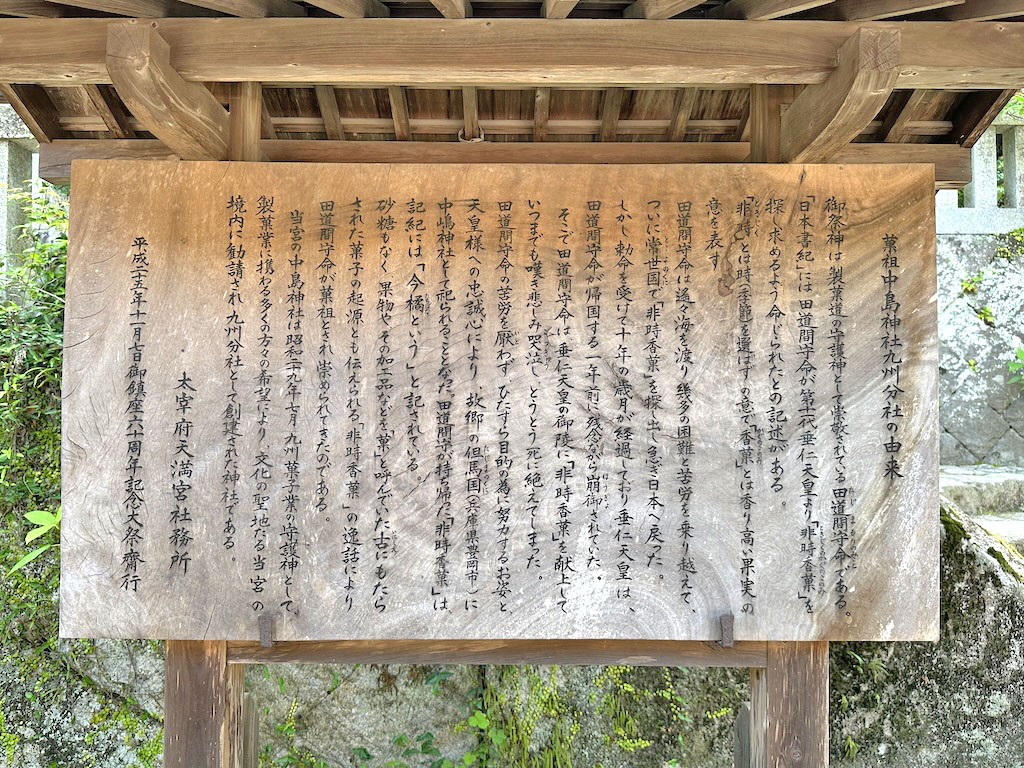 菓祖中島神社九州分社の由来
御祭神は製菓道の守護神として崇敬されている田道間守命である。
「日本書紀」には田道間守命が第十一代垂仁天皇より「非時香菓」を
探し求めるよう命じられたとの記述がある。
「非時」とは時(季節)を選ばずの意で「香菓」とは香り高い果実の
意を表す
田道間守命は遙々海を渡り幾多の困難と苦労を乗り越えて、
ついに常世国で「非時香菓」を探し出し急ぎ日本へ戻った。
しかし勅命を受けて十年の歳月が経過しており垂仁天皇は、
田道間守命が帰国する一年前に残念ながら崩御されていた。
そこで田道間守命は垂仁天皇の御陵に「非時香菓」を献上して
いつまでも嘆き悲しみ哭泣しとうとう死に絶えてしまった。
田道間守命の苦労を厭わず、ひたすら目的の為に努力するお姿と、
天皇様への忠誠心により、故郷の但馬国(兵庫県豊岡市)に
中嶋神社として祀られることとなった。田道間守が持ち帰った「非時香菓」は、
記紀には「今橘という」と記されている。
砂糖もなく果物やその加工品などを「菓」と呼んでいた古にもたら
された菓子の起源とも伝えられる「非時香菓」の逸話により
田道間守命が菓祖とされ崇められてきたのである。
当宮の中島神社は昭和二十九年七月、九州菓子業の守護神として、
製菓業に携わる多くの方々の希望により、文化の聖地たる当宮の
境内に勧請され九州分社として創建された神社である。
太宰府天満宮社務所
平成二五年十一月七日御鎮座六十周年記念大祭齊行